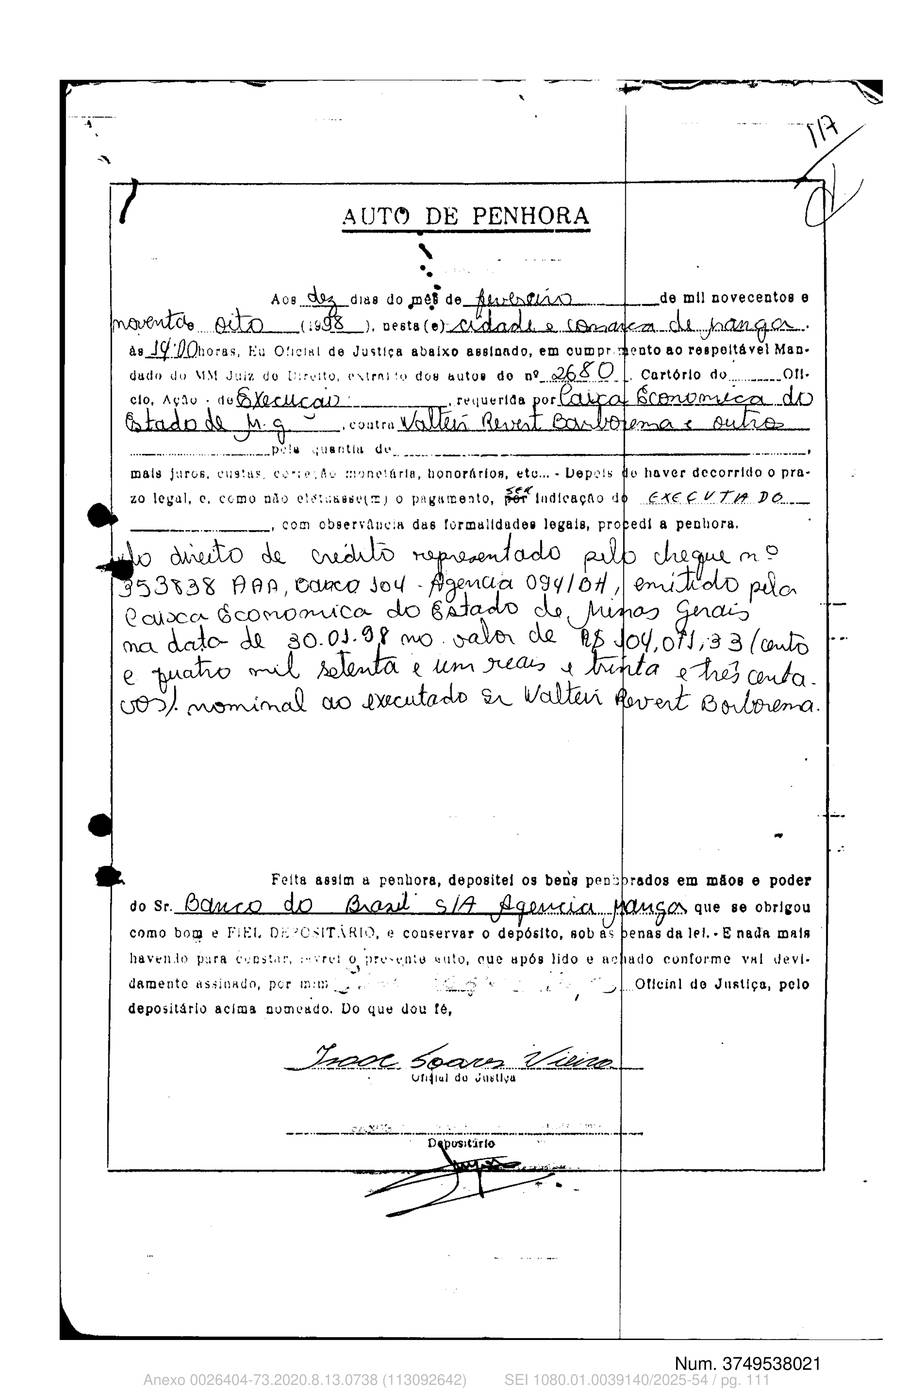 117
AUTO DE PENHORA
Aos dez dias do mês de fevereiro de mil novecentos e
noventa oito (1998), nesta(e) cidade e comarca de manga.
às 14:00 horas, Eu Oficial de Justiça abaixo assinado, em cumprimento ao respeitável Man-
dado do MM Juiz de Direito, extraito dos autos do nº 2680. Cartório do Ofi-
cio, Ação - de Execução, requerida por Caixa Economica do
Estado de M.g, contra Valteir Revert Borborema e outros
pela quantia de ,
mais juros, custas, correção monetária, honorários, etc... - Depois de haver decorrido o pra-
zo legal, e, como não efetuasse(m) o pagamento, por ser indicação do EXECUTADO
, com observância das formalidades legais, procedi a penhora.
do direito de crédito representado pelo cheque nº
953838 AAA, banco 104 - Agencia 094/BH, emitido pela
Caixa Economica do Estado de Minas Gerais
na data de 30.01.98 no valor de R$ 104,071,33 (cento
e quatro mil setenta e um reais e trinta e três centa-
vos). nominal ao executado sr Valteir Revert Borborema.
Feita assim a penhora, depositei os bens penhorados em mãos e poder
do Sr. Banco do Brasil S/A Agencia manga que se obrigou
como bom e FIEL DEPOSITÁRIO, e conservar o depósito, sob as penas da lei. - E nada mais
havendo para constar, lavrei o presente auto, que após lido e achado conforme vai devi-
damente assinado, por mim Oficial de Justiça, pelo
depositário acima nomeado. Do que dou fé,
Isaac Soares Vieira
Oficial de Justiça
Depositário
Num. 3749538021
Anexo 0026404-73.2020.8.13.0738 (113092642) SEI 1080.01.0039140/2025-54 / pg. 111